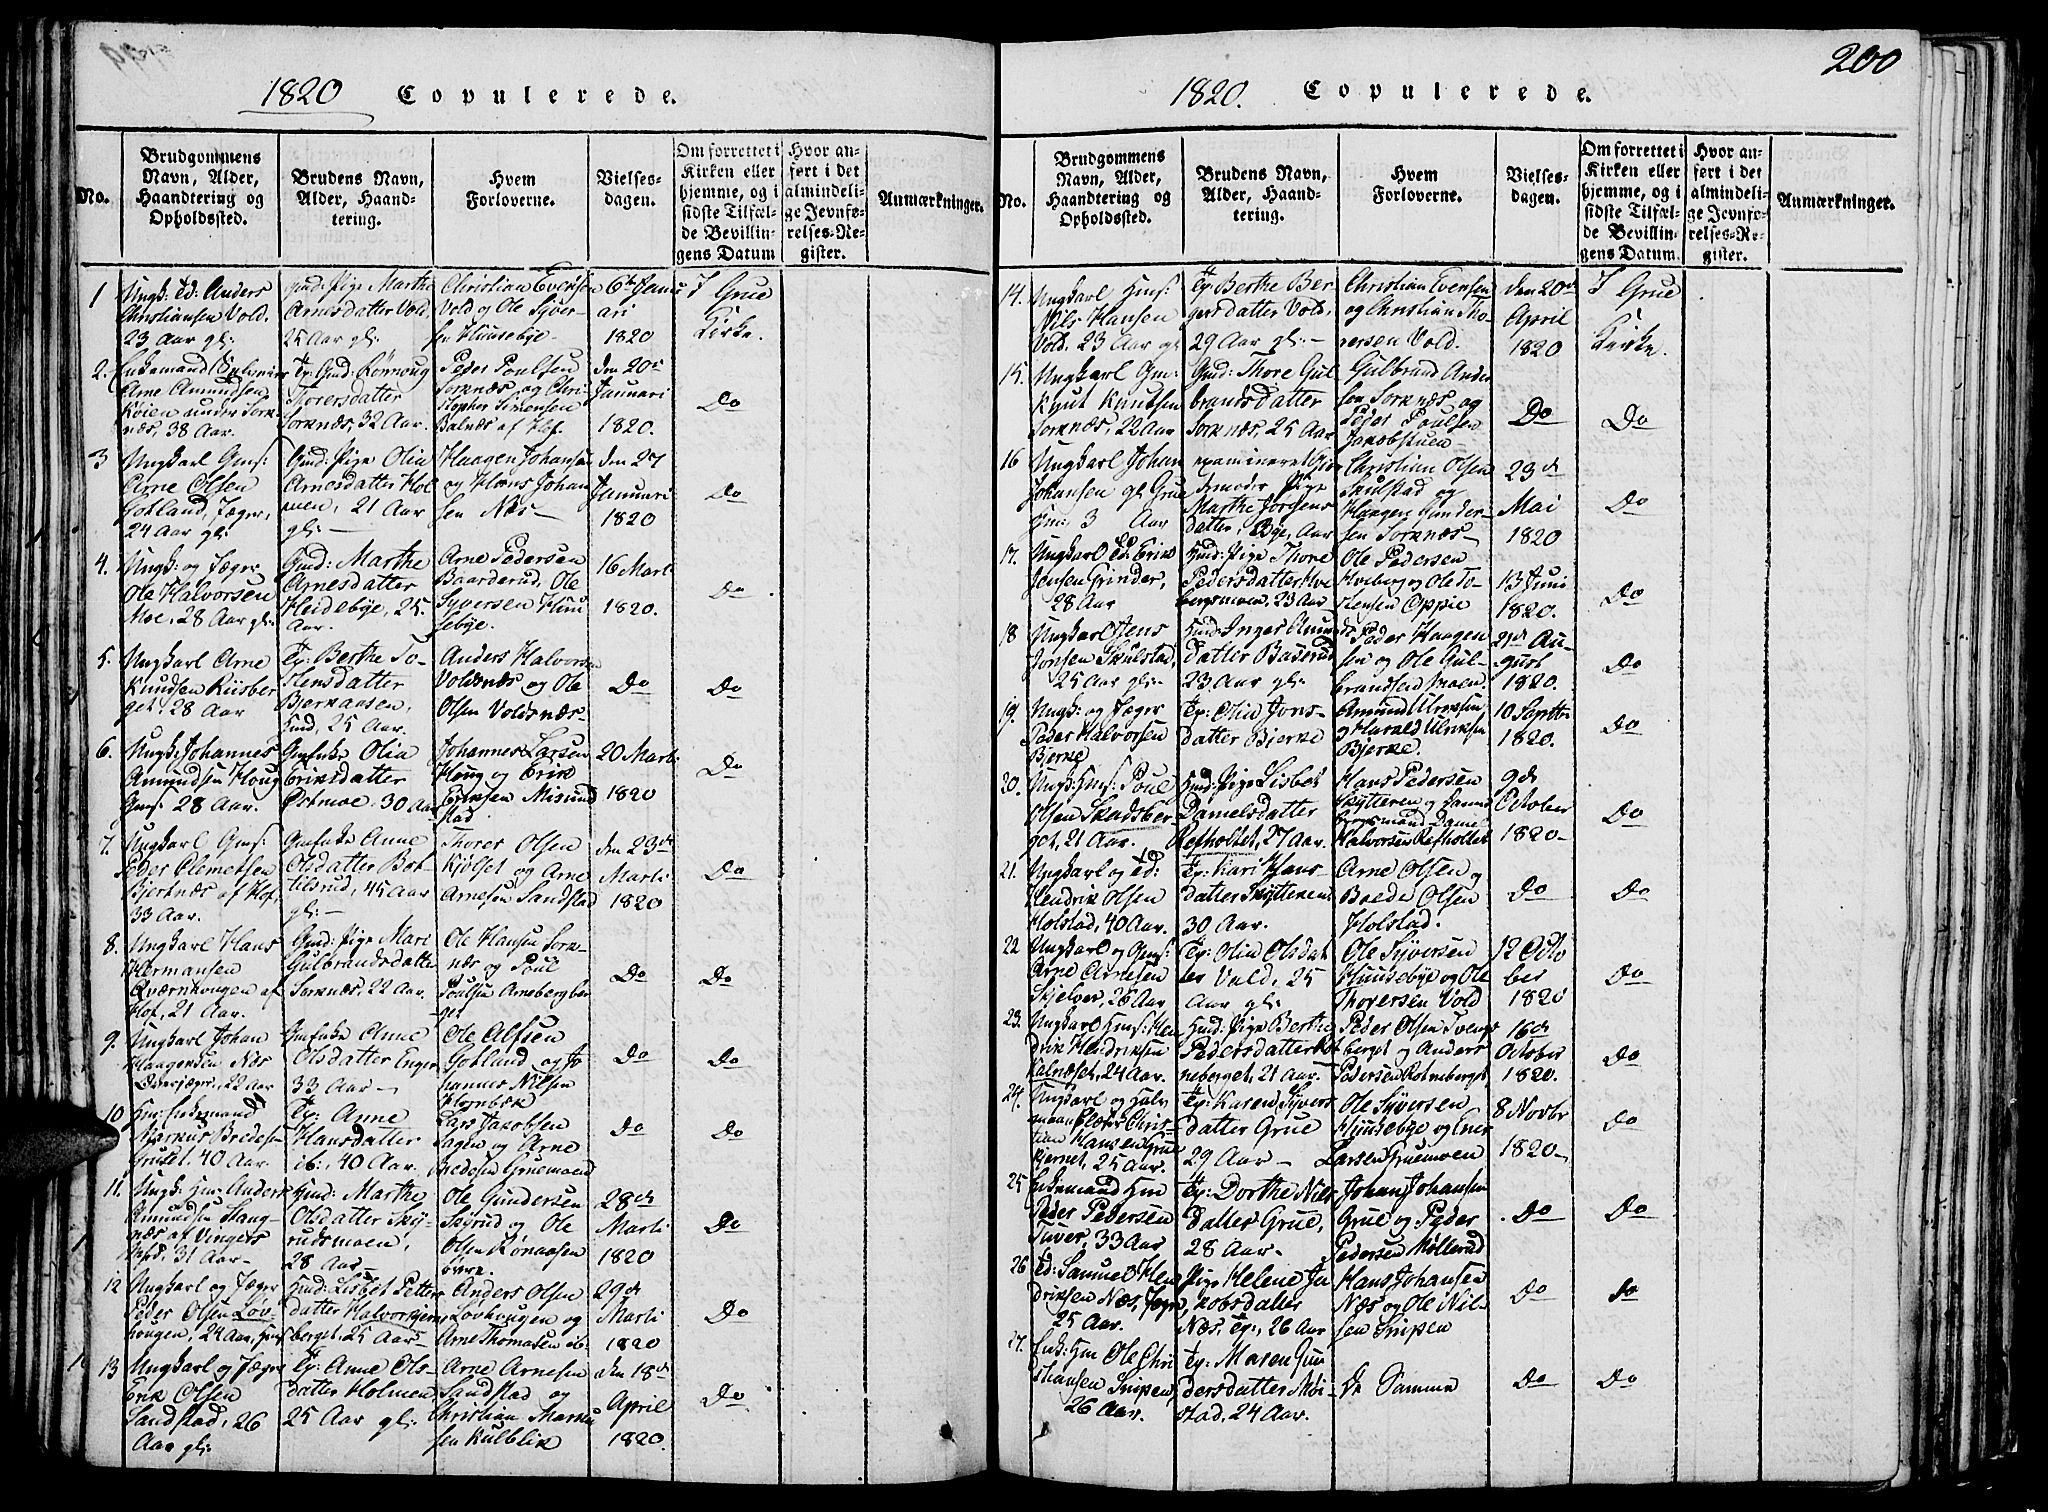 1820 Copulerede.
No.
Brudgommens
Navn, Alder,
Haandtering og
Opholdssted.
Brudens Navn,
Alder, Haand-
tering.
Hvem
Forloverne.
Vielses-
dagen.
Om forrettet i
Kirken eller
hjemme, og i
sidste Tilfæl-
de Bevillin-
gens Datum
Hvor an-
ført i det
almindeli-
ge Jevnfø-
relses-Re-
gister.
Anmærkninger.
1
Ungk: Ed: Anders
Christiansen Vold.
23 Aar gl:
Gmd: Pige Marthe
Arnesdatter Vold,
25 Aar gl:
Christian Evensen
Vold og Ole Syver-
sen Huusebye
6te Janu
ari
1820
I Grue
Kirke.
2.
Enkemand
Arne Amundsen
Koien under Sork-
næs, 38 Aar.
Tp: Gmd: Rønnoug
Thorersdatter
Sorknæs, 32 Aar.
Peder Poulsen
Sorknæs og Chri-
stopher Simensen
Balnæs af Hof.
den 20de
Januari
1820.
Do
3
Ungkarl Gms:
Arne Olsen
Gotland, Jæger,
24 Aar gl:
Gmd: Pige Olia
Arnesdatter Hol
men, 21 Aar
gl:
Haagen Johansen
og Hans Johan
sen Næs
den 27
Januari
1820
Do
4.
Ungk: og Jæger
Ole Halvorsen
Moe, 28 Aar gl:
Gmd: Marthe
Arnesdatter
Heidebye, 25.
Aar.
Arne Pedersen
Baarderud, Ole
Syversen Huu
sebye.
16 Marti
1820.
Do
5.
Ungkarl Arne
Knudsen Riisber
get. 28 Aar
Tp: Berthe To-
stensdatter
Bjerkaasen,
Hmd, 25 Aar.
Anders Halvorsen
Voldsnæs og Ole
Olsen Voldsnæs
Do
Do
6.
Ungk: Johannes
Amundsen Houg
Gms: 28 Aar.
Gmenke Olia
Eriksdatter
Østmoe. 30 Aar
Johannes Larsen
Houg og Erik
Eriksen Misund
stad
20 Marti
1820
Do
7.
Ungkarl Gms:
Peder Clemetsen
Bjertnæs af Hof,
33 Aar.
Gmenke Anne
Olsdatter Bot-
tilsrud, 45 Aar
gl:
Thorer Olsen
Kjølset og Arne
Arnesen Sandstad
den 23de
Marti
1820
Do
8.
Ungkarl Hans
Hermansen
Qværnhougen af
Hof, 21 Aar.
Gmd: Pige Mari
Gulbrandsdatter
Sorknæs, 22 Aar.
Ole Hansen Sork-
næs og Poul
Poulsen Arneberg ber
get
Do
Do
9.
Ungkarl Johan
Haagensen Næs
22 Aar
Gmenke Anne
Olsdatter Enger
33 Aar
Ole Alfsen
Gotland og Jo
hannes Nilsen
Hornbæk
Do
Do
10
Hm: Enkemand
Markus Bredesen
Gruset, 40 Aar.
Tp: Anne
Hansdatter
ib:, 40 Aar.
Lars Jacobsen
Sagen og Arne
Bredesen Gruemoend
Do
Do
11.
Ungk: Hm: Anders
Amundsen Stang-
næs af Vingers
Præst, 31 Aar
Hmd: Marthe
Olsdatter Sky-
rudsmoen,
28 Aar
Ole Gundersen
Skyrud og Ole
Olsen Rønaasen
øvre.
28de
Marti
1820
Do
12
Ungkarl og Jæger
Peder Olsen Løv-
hougen, 24 Aar, Hms
Hmd: Lisbet Petters
datter Halvorshjem
berget, 25 Aar
Anders Olsen
Løvhougen og
Arne Thomasen ib:
29de
Marti
1820
Do
13
Ungkarl og Jæger
Erik Olsen
Sandstad, 26
Aar gl:
Tp: Anne Ols-
datter Holmen
25 Aar gl:
Arne Arnesen
Sandstad og
Christian Marku
sen Kulblik
den 18de
April
1820.
Do
200
1820. Copulerede.
No.
Brudgommens
Navn, Alder,
Haandtering og
Opholdssted.
Brudens Navn,
Alder, Haand-
tering.
Hvem
Forloverne.
Vielses-
dagen.
Om forrettet i
Kirken eller
hjemme, og i
sidste Tilfæl-
de Bevillin-
gens Datum.
Hvor an-
ført i det
almindeli-
ge Jevnfø-
relses-Re-
gister.
Anmærkninger.
14.
Ungkarl Hms:
Nils Hansen
Vold. 23 Aar gl
Tp: Berthe Ber-
gersdatter Vold,
29 Aar gl:
Christian Evensen
og Christian Tho-
rersen Vold.
den 20de
April
1820
I Grue
Kirke.
15.
Ungkarl Gm:
Knut Knutsen
Sorknæs, 22 Aar
Gmd: Thore Gul
brandsdatter
Sorknæs, 25 Aar
Gulbrand Ander
sen Sorknæs og
Peder Poulsen
Jakobstuen
Do
Do
16
Ungkarl Johan
Johansen gl. Grue
Hm: 3 Aar
examineret Gjor
demoder Pige
Marthe Jørgens
datter, Bye, Aar
Christian Olsen
Skulstad og
Haagen Gunder-
sen Sorknæs
23de
Mai
1820
Do
17.
Ungkarl Ed: Erik
Jensen Grinder,
28 Aar
Hmd: Pige Thore
Pedersdatter Hve
bergsmoen, 23 Aar
Ole Pedersen
Hveberg og Ole To-
stensen Oppie
13 Juni
1820.
Do
18
Ungkarl Jens
Jonsen Skulstad,
25 Aar gl:
Hmd: Inger Amunds
datter Baserud
23 Aar gl:
Peder Haagen
sen og Ole Gul-
brandsen Moen.
21de Au-
gust
1820.
Do
19.
Ungk: og Jæger
Peder Halvorsen
Bjerke
Tp: Olia Jons-
datter Bjerke
Amund Ulriksen
og Harald Ulriksen
Bjerke.
10 Septbr
1820.
Do
20.
Ungk: Hms: Poul
Olsen Skadsber
get, 21 Aar.
Hmd: Pige Lisbet
Danielsdatter
Refholtet, 27 Aar.
Hans Pedersen
Skytteren og Sauns
bergsmand Daniel
Halvorsen Refholtet
9de
October
1820
Do
21.
Ungkarl og Ed:
Hendrik Olsen
Holstad, 40 Aar.
Tp: Kari Hans-
datter Skytteren
30 Aar.
Arne Olsen og
Brede Olsen
Holstad.
Do
Do
22
Ungkarl og Gms:
Arne Arnesen
Skjelver, 26 Aar
Tp: Olia Olsdat
ter Vold, 25
Aar gl:
Ole Syversen
Huusebye og Ole
Thorersen Vold
12 Octo
ber
1820
Do
23.
Ungkarl Hms: Hen
drik Hendriksen
Kalnæset, 24 Aar.
Hmd: Pige Berthe
Pedersdatter Rot
neberget, 21 Aar.
Peder Olsen Tvengs
berget og Anders
Pedersen Rotneberget
16de
October
1820.
Do
24.
Ungkarl og Halv
mann Elæver Chris-
tian Hansen Grue
kjernet, 25 Aar.
Tp: Karen Syvers
datter Grue
29 Aar
Ole Syversen
Huusebye og Iver
Larsen Gruemoen
8 Novbr
1820
Do
25
Enkemand Hm
Peder Pedersen
Tuver, 33 Aar
Tp: Dorthe Niels
datter Grue,
28 Aar
Johan Johansen
Grue og Peder
Pedersen Møllerud
Do
Do
26
Ed: Samuel Hen
driksen Næs, Jæger,
25 Aar.
Pige Helene Ja
kobsdatter
Næs, Tp:, 26 Aar
Hans Johansen
Næs og Ole Nil-
sen Snipen
Do
do
27.
Enk: Hm Ole Chri
stiansen Snipen,
26 Aar.
Tp: Maren Gun
dersdatter Møi-
stad, 24 Aar.
De Samme
Do
Do